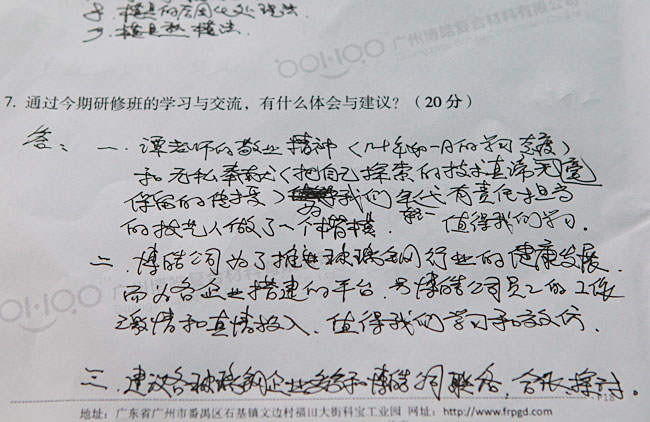 8. 模具的合图化处理法.
9. 模具脱模法.
广州博皓复合材料有限公司
7. 通过今期研修班的学习与交流，有什么体会与建议？（20 分）
答： 一. 谭老师的敬业精神（几十年如一日的学习态度）
和无私奉献（把自己探索的技术真谛无毫
保留的传授） 为我们年代有责任担当
的技艺人做了一个楷模. 值得我们学习.
二. 博皓公司为了推进玻璃钢行业的健康发展.
而为各企业搭建的平台. 与博皓公司员工的工作
激情和真情投入. 值得我们学习和效仿.
三. 建议各玻璃钢企业多和博皓公司联络, 合作, 探讨.
地址：广东省广州市番禺区石基镇文边村福田大街科宝工业园 网址：http://www.frpgd.com